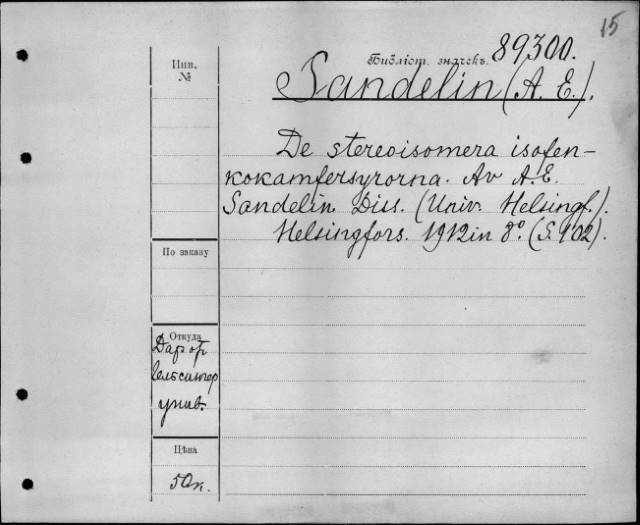 15
Инв.
№
Библіот. значекъ. 89300.
Sandelin (A. E.).
De stereoisomera isofen-
kokamfersyrorna. Av A. E.
Sandelin Diss. (Univ. Helsingf.).
Helsingfors. 1912 in 8º. (S. 102).
По заказу
Откуда
Дар от
Гельсингф
унив.
Цѣна
50к.